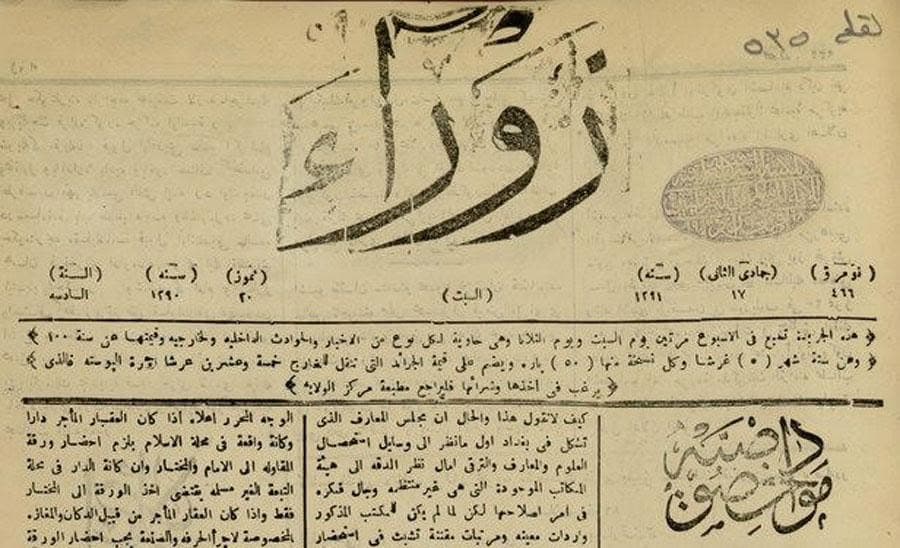 زوراء
( نومرو ) ( جمادى الثانى ) ( سنه ) ( السبت ) ( تموز ) ( سنه ) ( السنة )
٤٦٦ ١٧ ١٢٩١ ٢٠ ١٢٩٠ السادسه
﴿ هذه الجريدة تطبع فى الاسبوع مرتين يوم السبت ويوم الثلاثا وهى حاوية لكل نوع من الاخبار والحوادث الداخليه والخارجيه وقيمتها عن سنة ١٠٠ ﴾
﴿ وعن ستة شهر ( ٥٠ ) غرشا وكل نسخة منها ( ٥٠ ) باره ويضم على قيمة الجرائد التى تنقل للخارج خمسة وعشرين غرشا اجرة البوسته فالذى ﴾
﴿ يرغب فى اخذها وشرائها فليراجع مطبعة مركز الولايه ﴾
مواد خصوصيه
كيف لانقول هذا والحال ان مجلس المعارف الذى
تشكل فى بغداد اول مانظر الى وسايل استحصال
العلوم والمعارف والترقى امال نظر الدقه الى هيئة
المكاتب الموجودة التى هى غير منتظمه وجال فكره
فى امر اصلاحها لكن لما لم يكن للمكتب المذكور
واردات معينه ومرتبات مقننة تشبث فى استحضار
الوجه المحرر اعلاه اذا كان العقار المأجر دارا
وكانة واقعة فى محلة الاسلام يلزم احضار ورقة
المقاوله الى الامام والمختار وان كانة الدار فى محلة
التبعة الغير مسلمه يقتضى اخذ الورقة الى المختار
فقط واذا كان العقار المأجر من قبيل الدكان والمغازه
المخصوصة لاجرآ الحرفه والصنعة يجب احضار الورقة